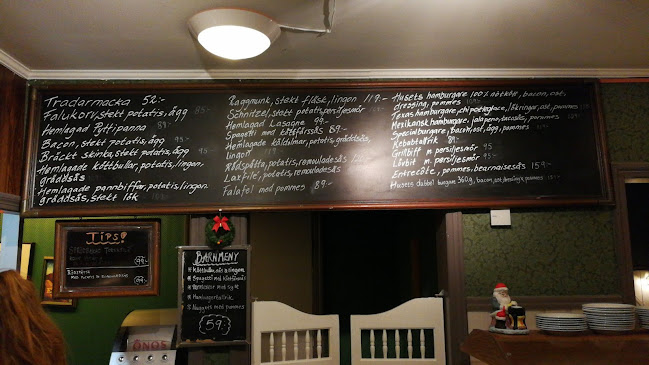 Tradarmacka 52:-
Falukorv, stekt potatis, ägg 85:-
Hemlagad Pyttipanna 89:-
Bacon, stekt potatis, ägg 95:-
Bräckt skinka, stekt potatis, ägg
Hemlagade köttbullar, potatis, lingon,
gräddsås
Hemlagade pannbiffar, potatis, lingon
gräddsås, stekt lök
Raggmunk, stekt fläsk, lingon 119:-
Schnitzel, stekt potatis, persiljesmör
Hemlagad Lasagne 99:-
Spagetti med köttfärssås 89:-
Hemlagade kåldolmar, potatis, gräddsås,
lingon
Rödspätta, potatis, remouladesås
Laxfilé, potatis, remouladesås
Falafel med pommes 89:-
Husets hamburgare 100% nötkött, bacon, ost,
dressing, pommes 109:-
Texas hamburgare, lökringar, ost, pommes
Mexikansk hamburgare, jalapeno, tacosås, pommes
Specialburgare, bacon, ost, ägg, pommes
Kebabtallrik 89:-
Grillbiff m persiljesmör 95:-
Lövbit m persiljesmör 95:-
Entrecôte, pommes, bearnaisesås 159:-
Husets dubbel burgare 360g, bacon, ost, dressing, pommes 135:-
TIPS!
99:-
99:-
BARNMENY
* Köttbullar, sås & lingon
* Spagetti med köttfärssås
* Pannkakor med sylt
* Hamburgertallrik
* Nuggets med pommes
59:-
ÖNOS